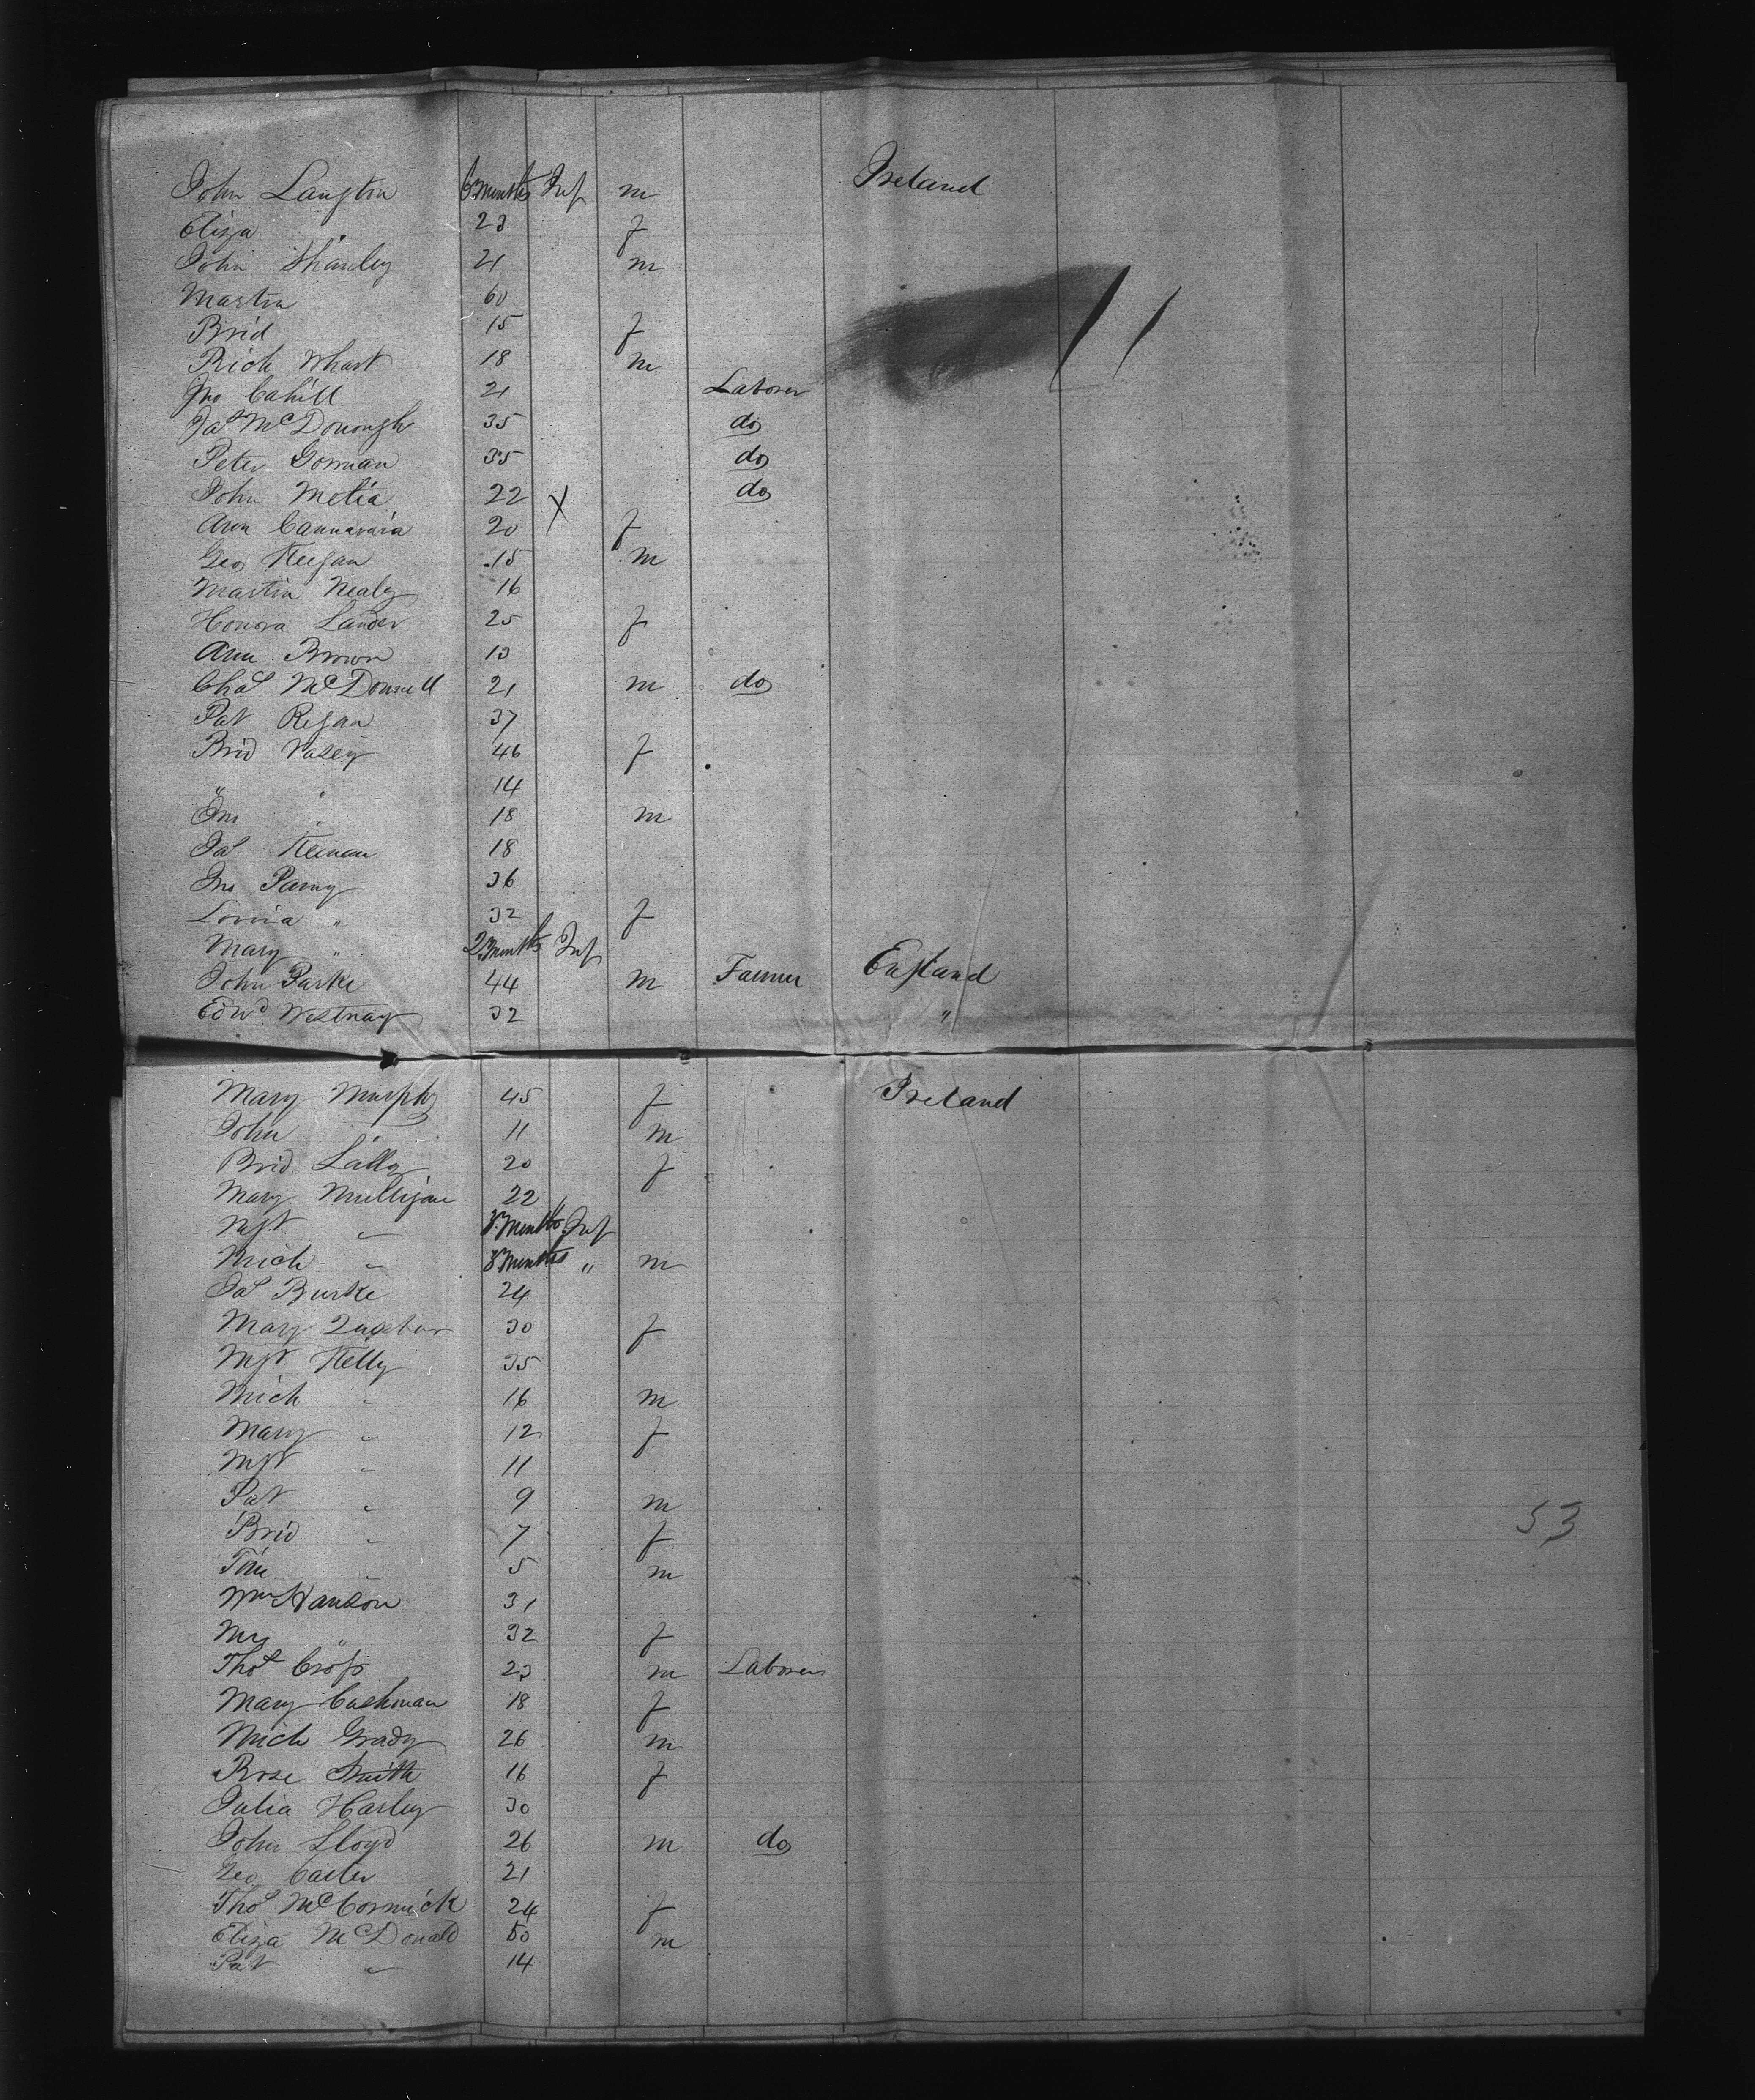 John Langton 6 months Inf m Ireland
Eliza " 23 f
John Shanley 21 m
Martin 60
Brid 15 f
Rich Whast 18 m
Jno Cahill 21 Laborer
Jas McDonough 35 do
Peter Gorman 35 do
John Metia 22 X do
Ann Cannavaia 20 f
Geo Keegan 15 m
Martin Nealy 16
Honora Lander 25 f
Ann Brown 13
Chas McDonnell 21 m do
Pat Regan 37
Brid Vasey 46 f
" " 14
Jno " 18 m
Jas Keenan 18
Jno Parny 36
Lovina " 32 f
Mary " 2 months Inf
John Parke 44 m Farmer England
Edwd Westnay 32 "
Mary Murphy 45 f Ireland
John " 11 m
Brid Lally 20 f
Mary Mulligan 22
Mgt " 8 Months Inf
Mich " 8 Months " m
Jas Burke 24
Mary 30 f
Mgt Kelly 35
Mich " 16 m
Mary " 12 f
Mgt " 11
Pat " 9 m
Brid " 7 f
Tim " 5 m
Wm Hanson 31
Mrs " 32 f
Thos Cross 23 m Laborer
Mary Cashman 18 f
Mich Grady 26 m
Rose Smith 16 f
Julia Harley 30
John Lloyd 26 m do
Geo Carter 21
Thos McCormick 24 f
Eliza McDonald 50 m
Pat " 14
53